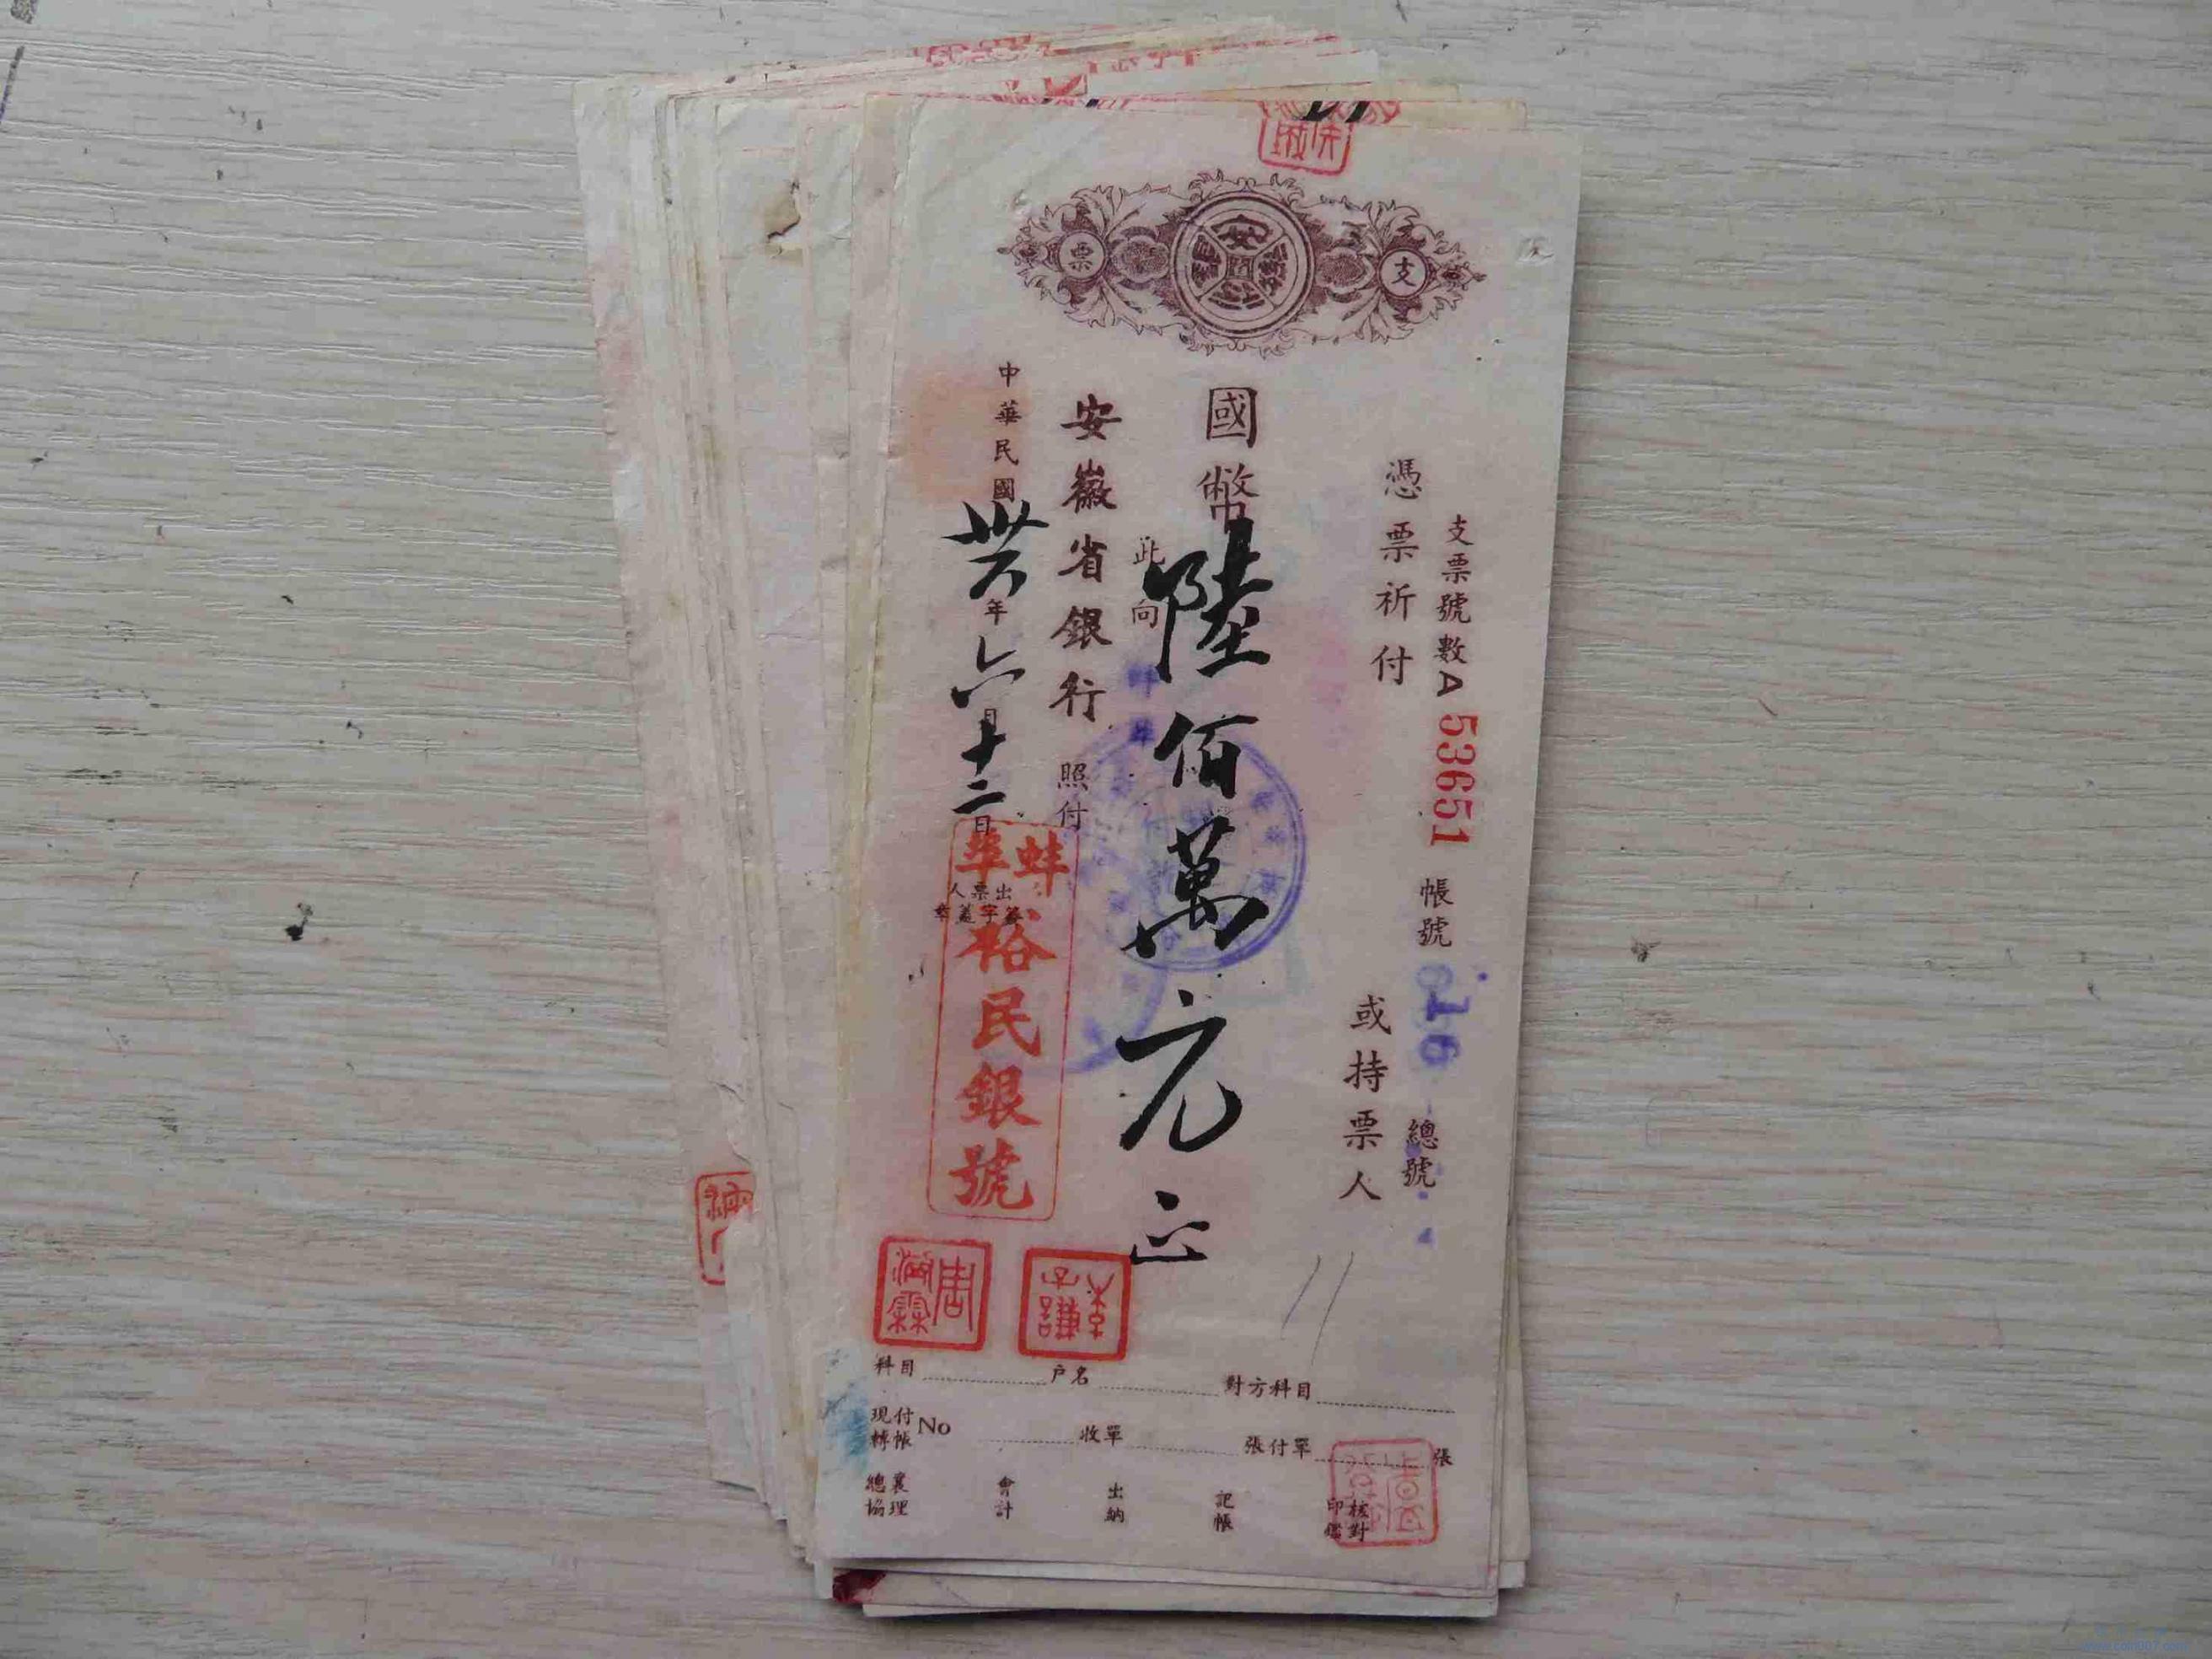 支票
安徽
支票號數A 53651 帳號 616 總號
憑票祈付 或持票人
國幣陸佰萬元正
此向 蚌埠
安徽省銀行 照付
中華民國卅六年六月十二日
出票人
簽字蓋章
蚌埠裕民銀號
周
李子謙
科目 户名 對方科目
現付 轉帳 No 收單 張付單 張
總協 襄理 會計 出納 記帳 核對印鑑